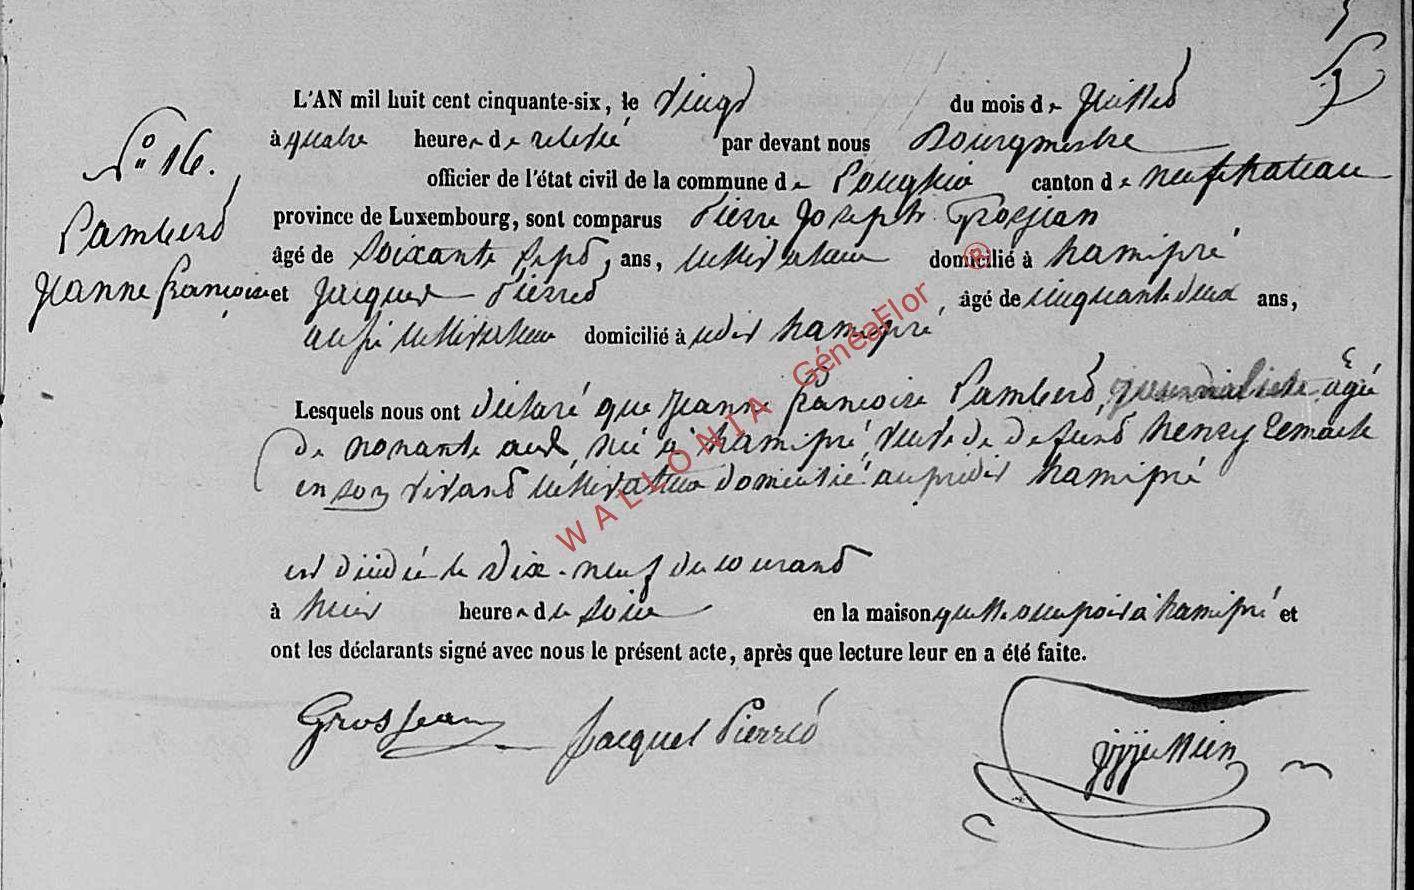 N° 16.
Lambert
Jeanne françoise
L'AN mil huit cent cinquante-six, le vingt du mois de Juillet
à quatre heures de relevé par devant nous Bourgmestre
officier de l'état civil de la commune de Longlier canton de neufchateau
province de Luxembourg, sont comparus Pierre Joseph Grosjean
âgé de soixante sept, ans, cultivateur domicilié à hamipré
et Jacques Pierret âgé de cinquante deux ans,
aussi cultivateur domicilié à udit hamipré,
Lesquels nous ont déclaré que Jeanne françoise Lambert, journalière âgée
de nonante ans, née à hamipré, veuve de defunt henry
en son vivant cultivateur domicilié au predit hamipré
est décédée le dix-neuf du courant
à heures du soir en la maison quelle occupoit à hamipré et
ont les déclarants signé avec nous le présent acte, après que lecture leur en a été faite.
Grosjean Jacques Pierret
WALLONIA GénéaFlor ®